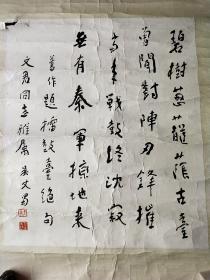 碧樹蔥蘢蔭古臺
曾聞對陣刃鋒摧
戰鼓終沈寂
無有秦軍掠地來
舊作題擂鼓臺絕句
文君同志雅屬 吴丈蜀